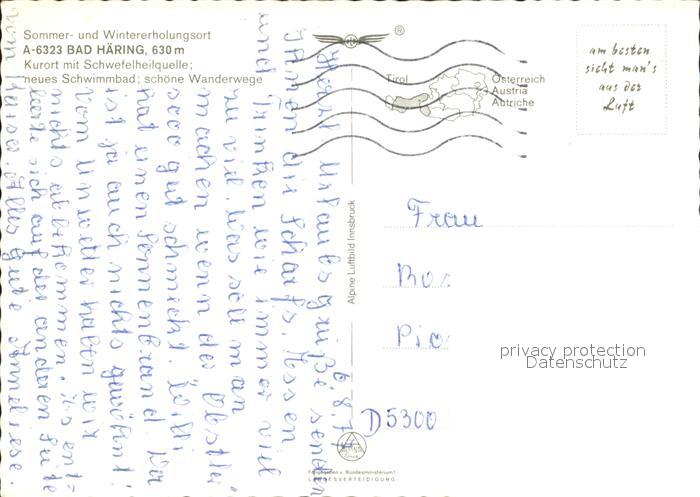 Sommer- und Wintererholungsort
A-6323 BAD HÄRING, 630 m
Kurort mit Schwefelheilquelle;
neues Schwimmbad; schöne Wanderwege
®
Tirol
Österreich
Austria
Autriche
am besten
sieht man's
aus der
Luft
6.8.77
Herzl Urlaubsgrüße senden
Ihnen die Scharfs. Essen
und trinken wie immer viel
zu viel. Was soll man
machen wenn der Obstler
sooo gut schmeckt. Willi
hat einen Sonnenbrand. Er
ist ja auch nichts gewöhnt!
Vom Unwetter haben wir
nichts abbekommen. Es ent-
leerte sich auf der anderen Seite
vom Kaiser. Alles Gute Anneliese.
Alpine Luftbild Innsbruck
Frau
Ro
Pio
D5300
privacy protection
Datenschutz
Freigegeben v. Bundesministerium f.
LANDESVERTEIDIGUNG